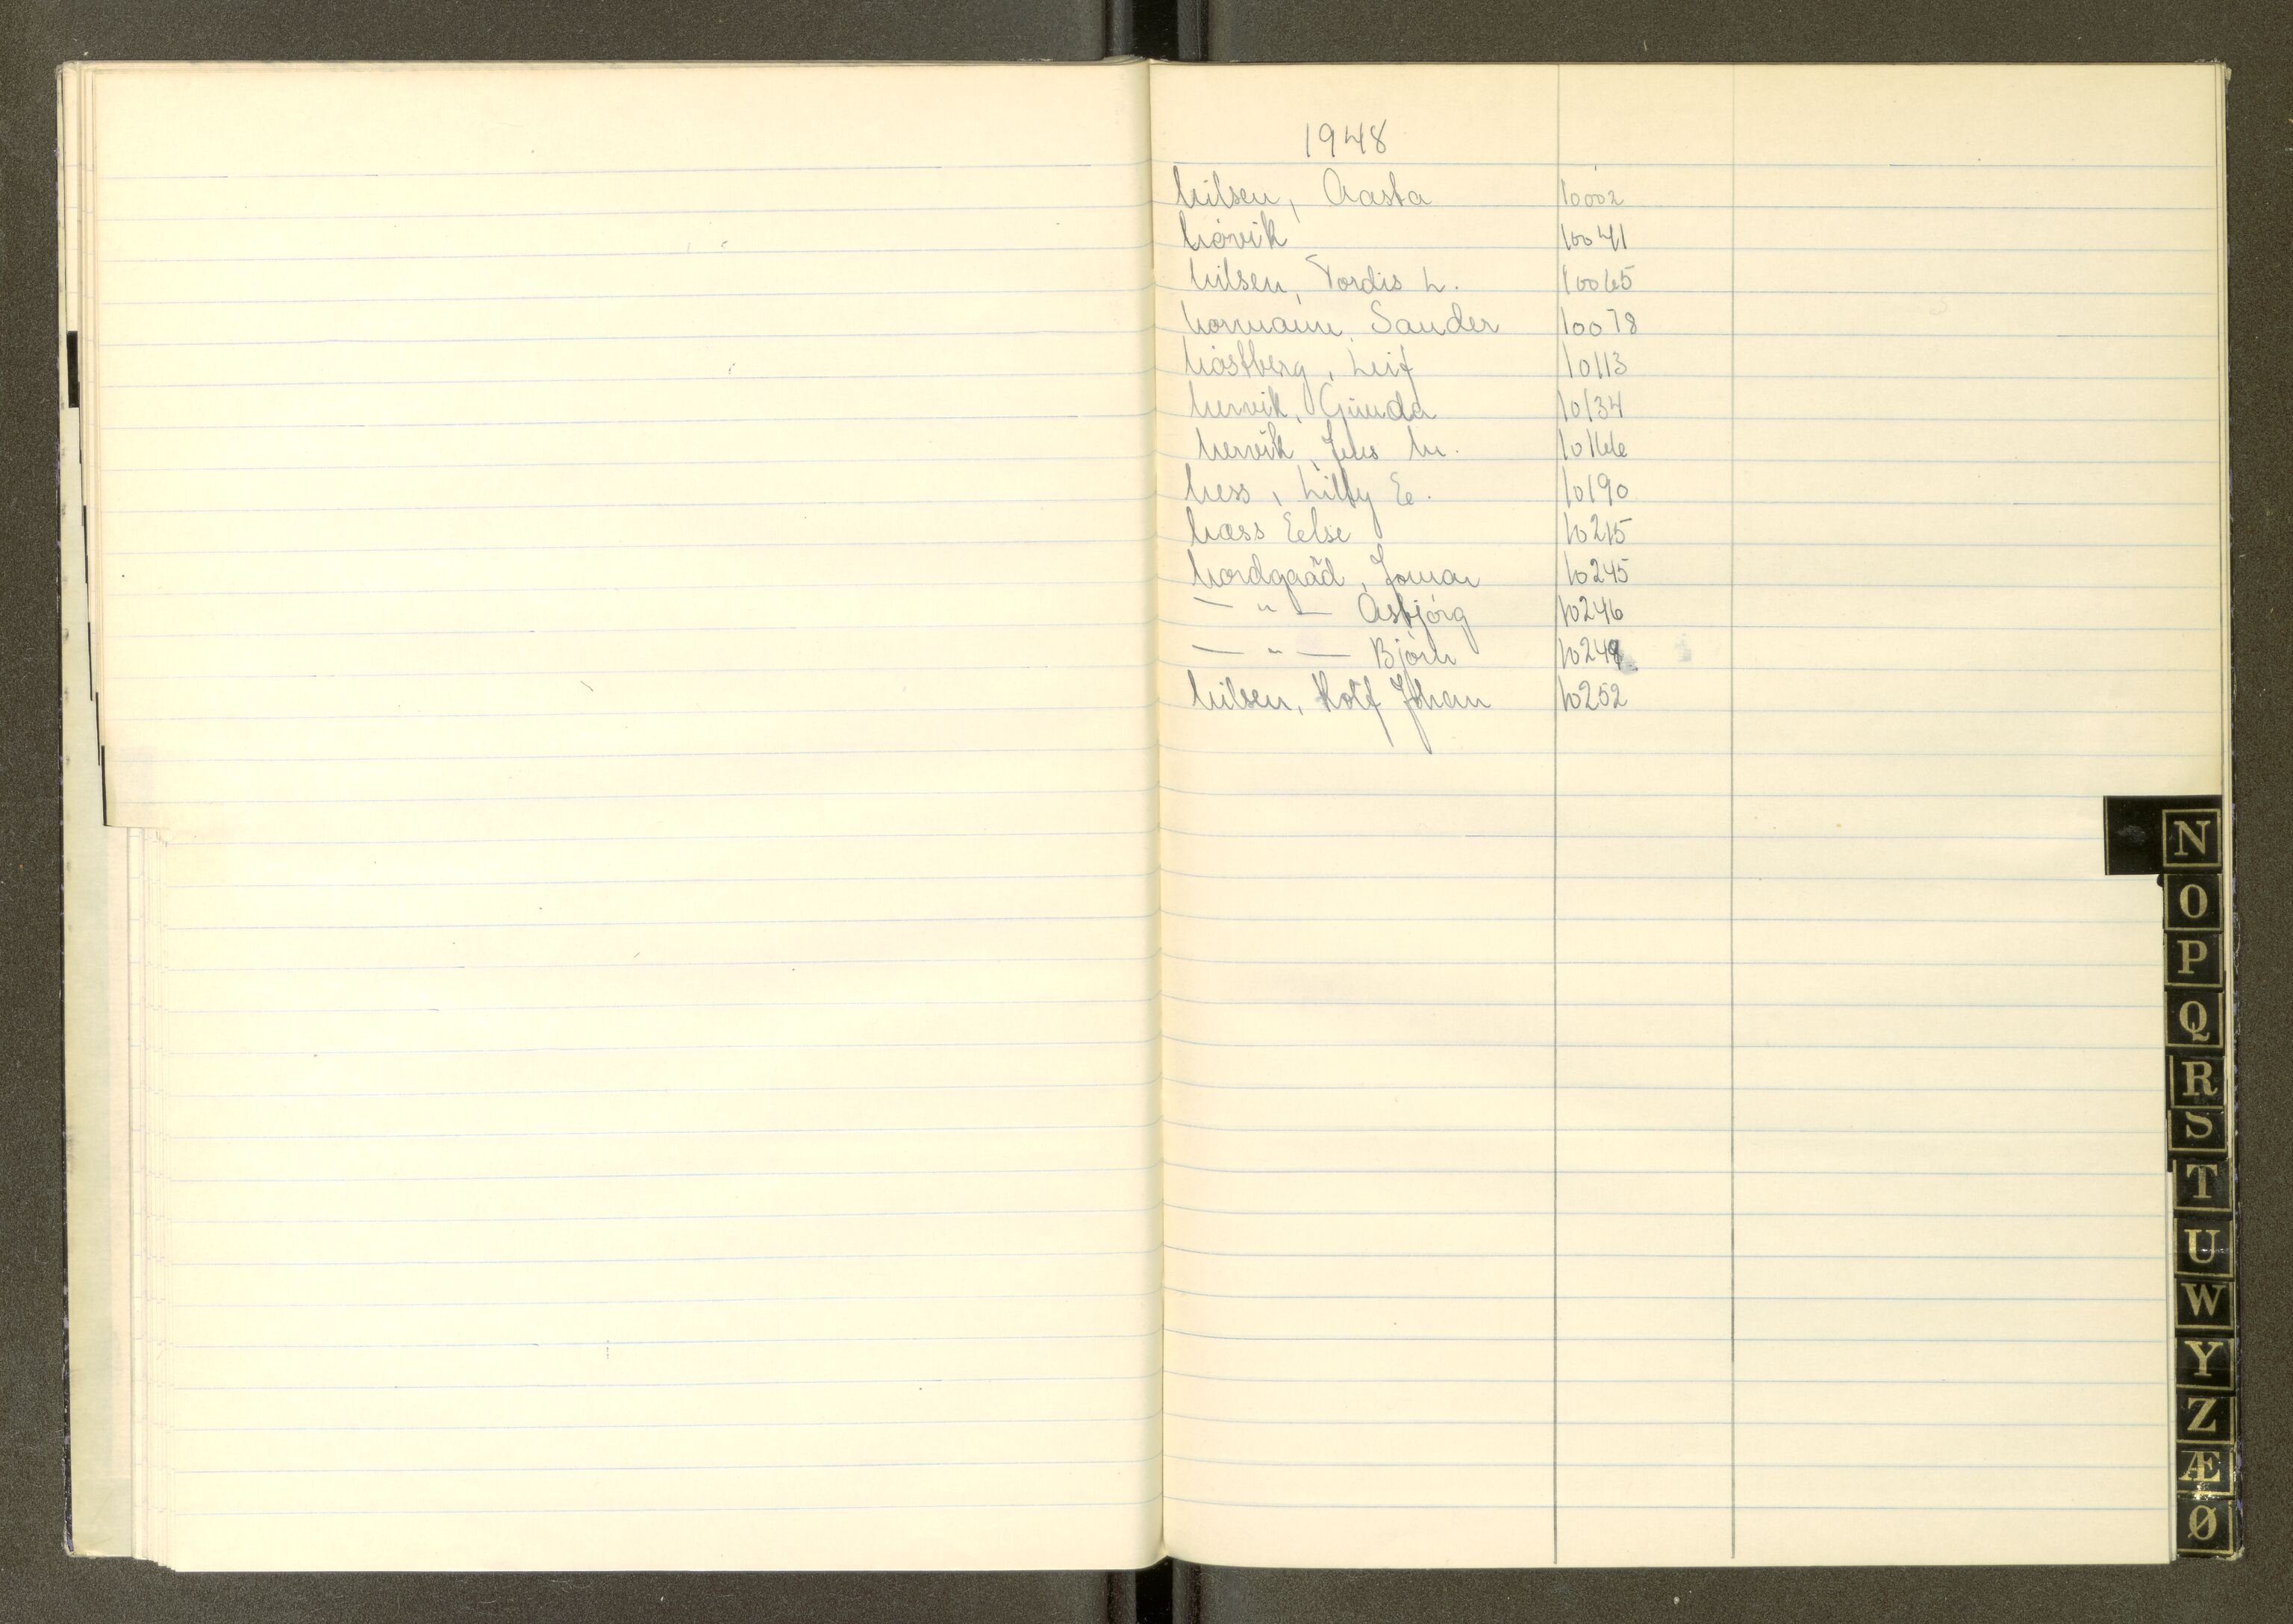 1948
Nilsen, Aasta 10002
Nørvik 10041
Nilsen, Tordis L. 10065
Normann, Sander 10078
Nøstberg, Leif 10113
Nervik, Gunda 10134
Nervik, Jens N. 10166
Ness, Lilly E. 10190
Næss Else 10215
Nordgaad, Jomar 10245
— " — Åsbjørg 10246
— " — Bjørn 10248
Nilsen, Rolf Johan 10252
N
O
P
Q
R
S
T
U
W
Y
Z
Æ
Ø